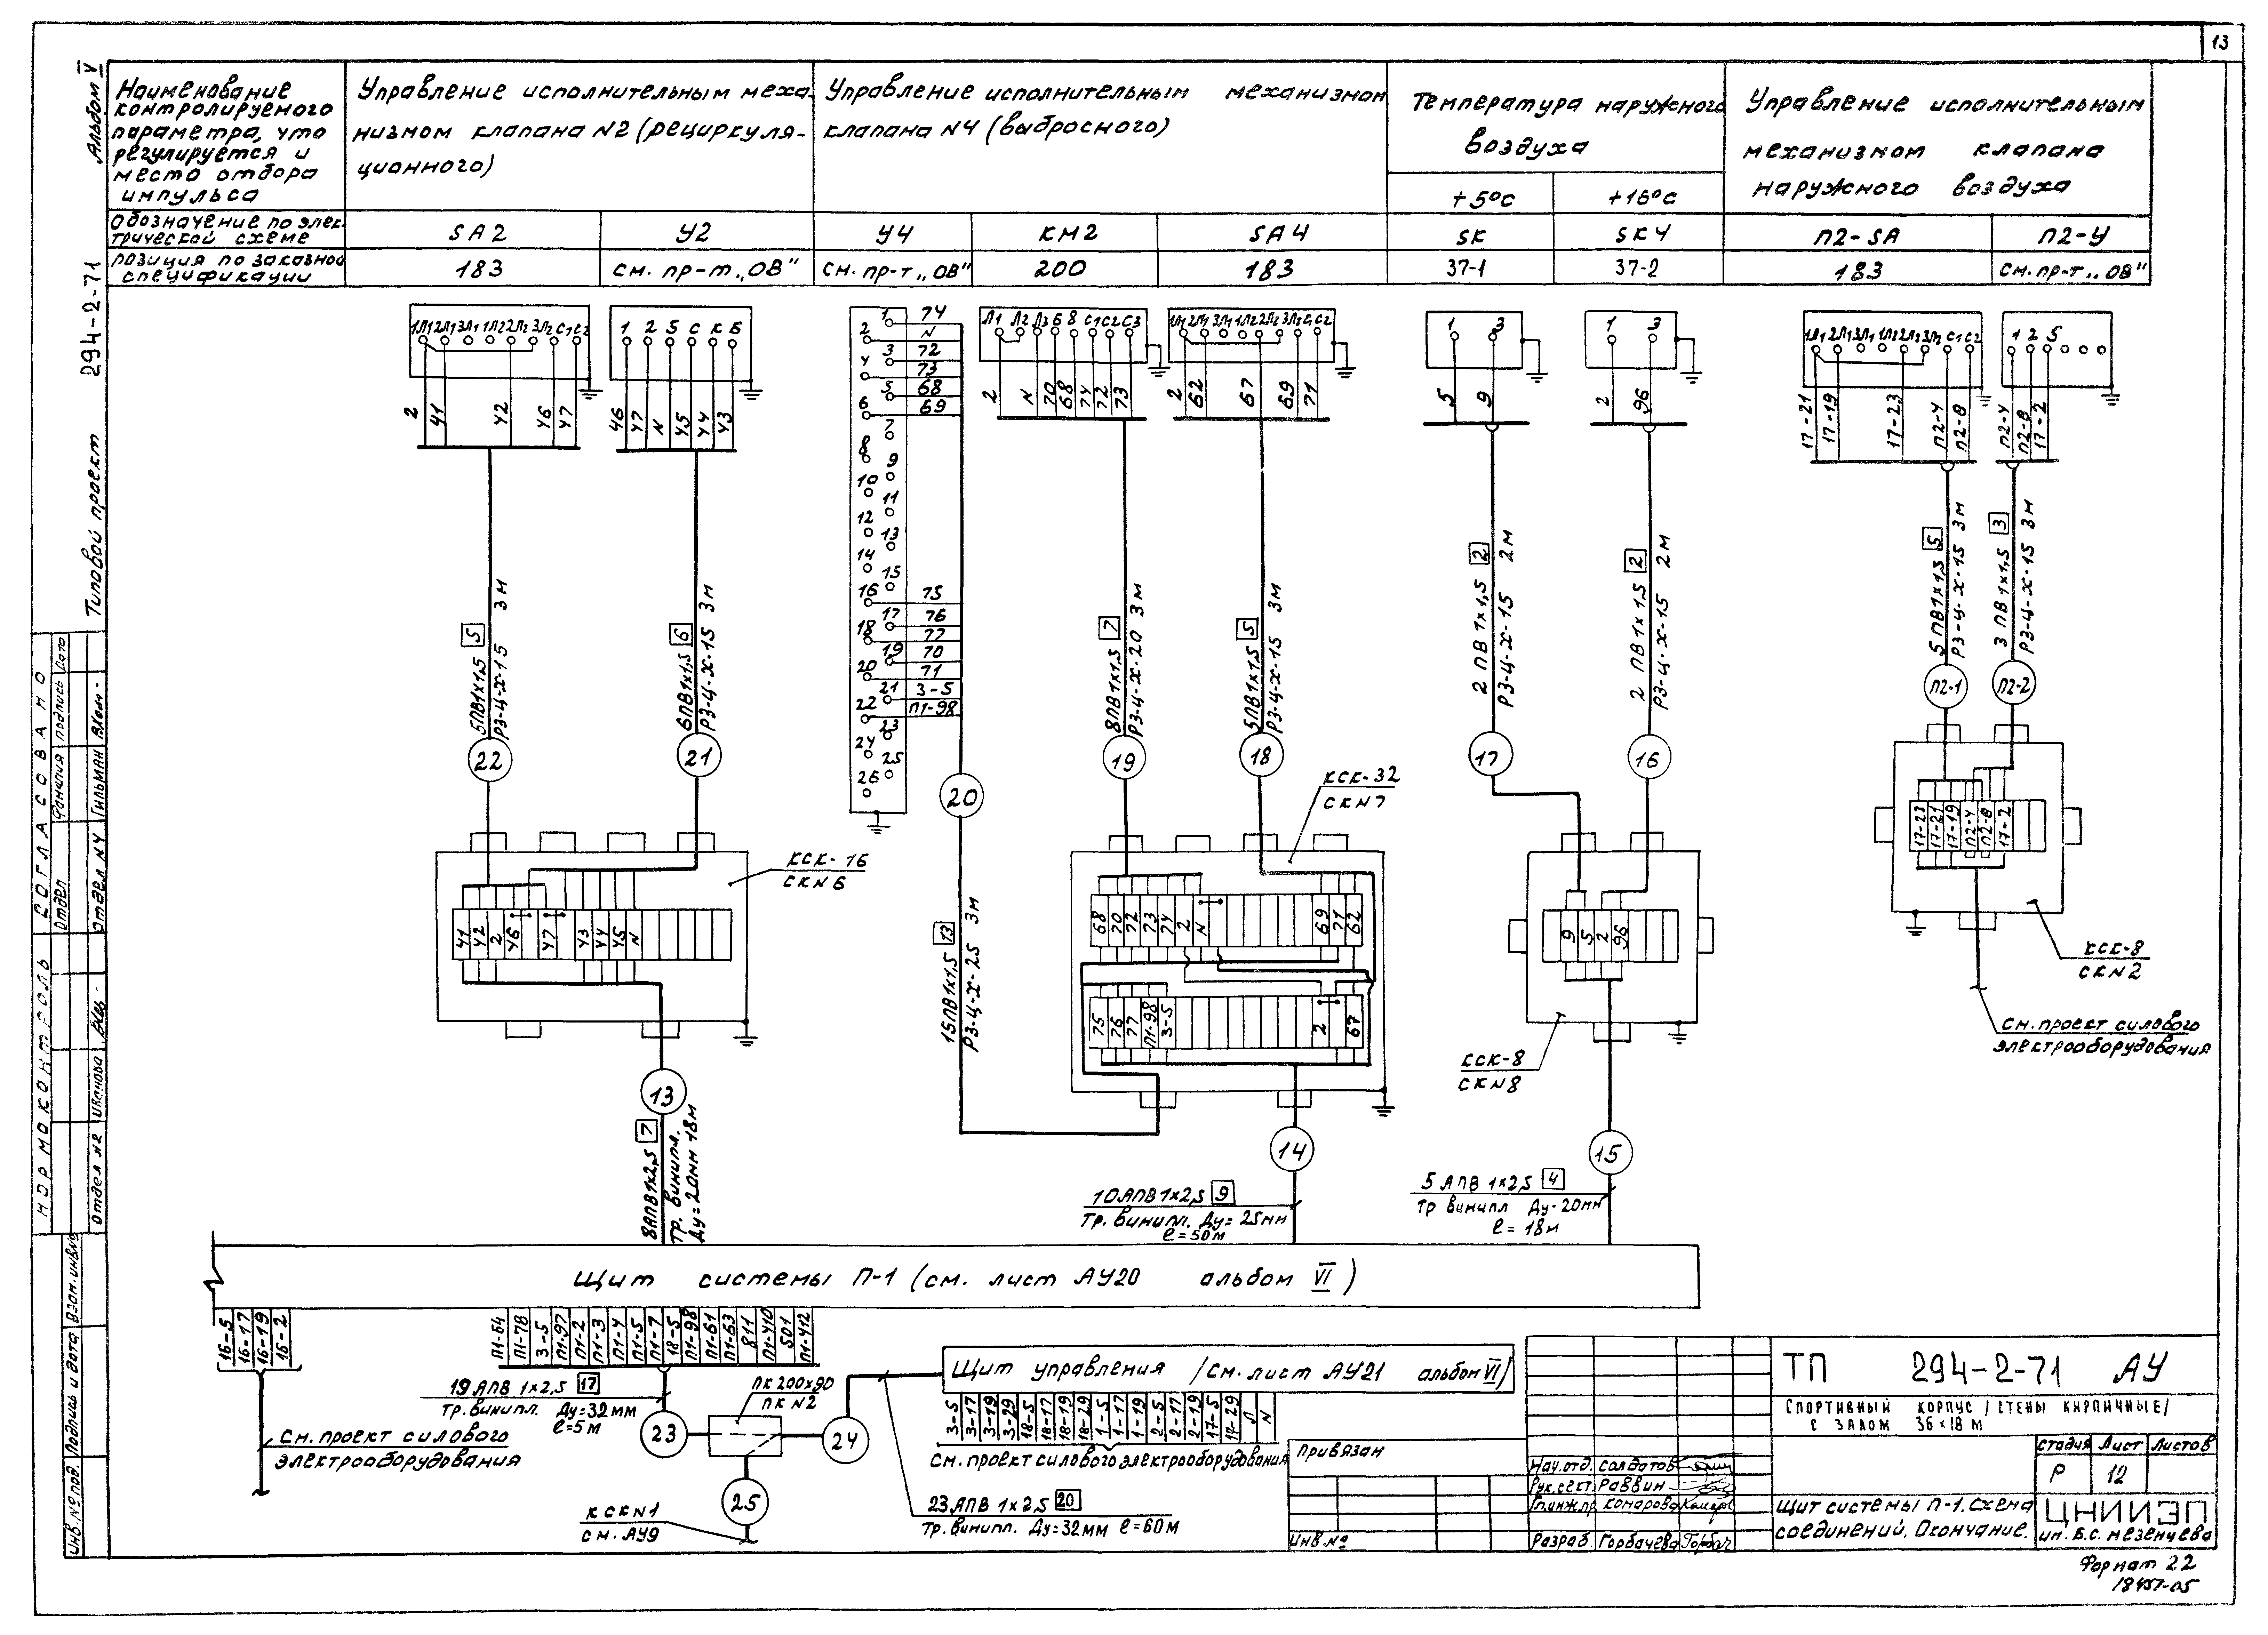 13
Альбом V
Типовой проект 294-2-71
Наименование
контролируемого
параметра, что
регулируется и
место отбора
импульса
Управление исполнительным меха-
низмом клапана N2 (рециркуля-
ционного)
Управление исполнительным механизмом
клапана N4 (выбросного)
Температура наружного
воздуха
+5°С
+16°С
Управление исполнительным
механизмом клапана
наружного воздуха
Обозначение по элек-
трической схеме
SA2
У2
У4
КМ2
SA4
SK
SK4
П2-SA
П2-У
Позиция по заказной
спецификации
183
См. пр-т „ОВ"
См. пр-т „ОВ"
200
183
37-1
37-2
183
См. пр-т „ОВ"
1Л1 2Л1 3Л1 1Л2 2Л2 3Л2 С1 С2
2 41 42 46 47
1 2 5 С К Б
46 47 N 45 44 43
1 74
2 N
3 72
4 73
5 68
6 69
7
8
9
10
11
12
13
14
15
16 75
17 76
18 77
19 70
20 71
21 3-5
22 П1-98
23
24
25
26
Л1 Л2 Л3 Б 8 С1 С2 С3
2 N 70 68 74 72 73
1Л1 2Л1 3Л1 1Л2 2Л2 3Л2 С1 С2
2 62 67 69 71
1 3
5 9
1 3
2 96
1Л1 2Л1 3Л1 1Л2 2Л2 3Л2 С1 С2
17-21 17-19 17-23 П2-4 П2-8
1 2 5
П2-4 П2-8 17-2
5ПВ1х1,5 5 3м
РЗ-Ц-Х-15
6ПВ1х1,5 6
РЗ-Ц-Х-15 3м
8ПВ1х1,5 7
РЗ-Ц-Х-20 3м
5ПВ1х1,5 5
РЗ-Ц-Х-15 3м
2 ПВ 1х1,5 2
РЗ-Ц-Х-15 2м
2 ПВ 1х1,5 2
РЗ-Ц-Х-15 2м
5 ПВ 1х1,5 5
РЗ-Ц-Х-15 3м
3 ПВ 1х1,5 3
РЗ-Ц-Х-15 3м
22
21
20
19
18
17
16
П2-1
П2-2
КСК-16
СК N6
41 42 2 46 47 43 44 45 N
15ПВ1х1,5 13
РЗ-Ц-Х-25 3м
КСК-32
СК N7
68 70 72 73 74 2 N 69 71 62
75 76 77 П1-98 3-5 2 67
9 5 2 96
КСК-8
СК N8
17-23 17-21 17-19 П2-4 П2-8 17-2
КСК-8
СК N2
См. проект силового
электрооборудования
13
8АПВ1х2,5 7
Тр. винипл.
Ду=20мм 18м
14
10АПВ1х2,5 9
Тр. винипл. Ду=25мм
ℓ=50м
15
5 АПВ 1х2,5 4
Тр винипл Ду-20мм
ℓ=18м
Щит системы П-1 (см. лист АУ20 альбом VI)
16-5 16-17 16-19 16-2
См. проект силового
электрооборудования
П1-64 П1-78 3-5 П1-97 П1-2 П1-3 П1-4 П1-5 П1-7 18-5 П1-98 П1-61 П1-63 811 П1-410 501 П1-412
19 АПВ 1х2,5 17
Тр. винипл. Ду=32мм
ℓ=5м
23
ПК 200х90
ПК N2
24
25
КСК N1
См. АУ9
Щит управления /см. лист АУ21 альбом VI/
3-5 3-17 3-19 3-29 18-5 18-17 18-19 18-29 1-5 1-17 1-19 2-5 2-17 2-19 17-5 17-29 Л N
См. проект силового электрооборудования
23 АПВ 1х2,5 20
Тр. винипл. Ду=32мм ℓ=60м
Привязан
Инв. №
ТП 294-2-71 АУ
Спортивный корпус /стены кирпичные/
с залом 36×18 м
Стадия Лист Листов
Р 12
Нач. отд. Солдатов
Рук. сект. Раввин
Гл. инж. пр. Комарова
Разраб. Горбачева
Щит системы П-1. Схема
соединений. Окончание.
ЦНИИЭП
им. Б.С. Мезенцева
Формат 22
18457-05
Согласовано
Нормоконтроль
Отдел Фамилия Подпись Дата
Отдел №4 Гильман
Отдел №2 Иванова
Инв. № под. Подпись и дата Взам. инв. №